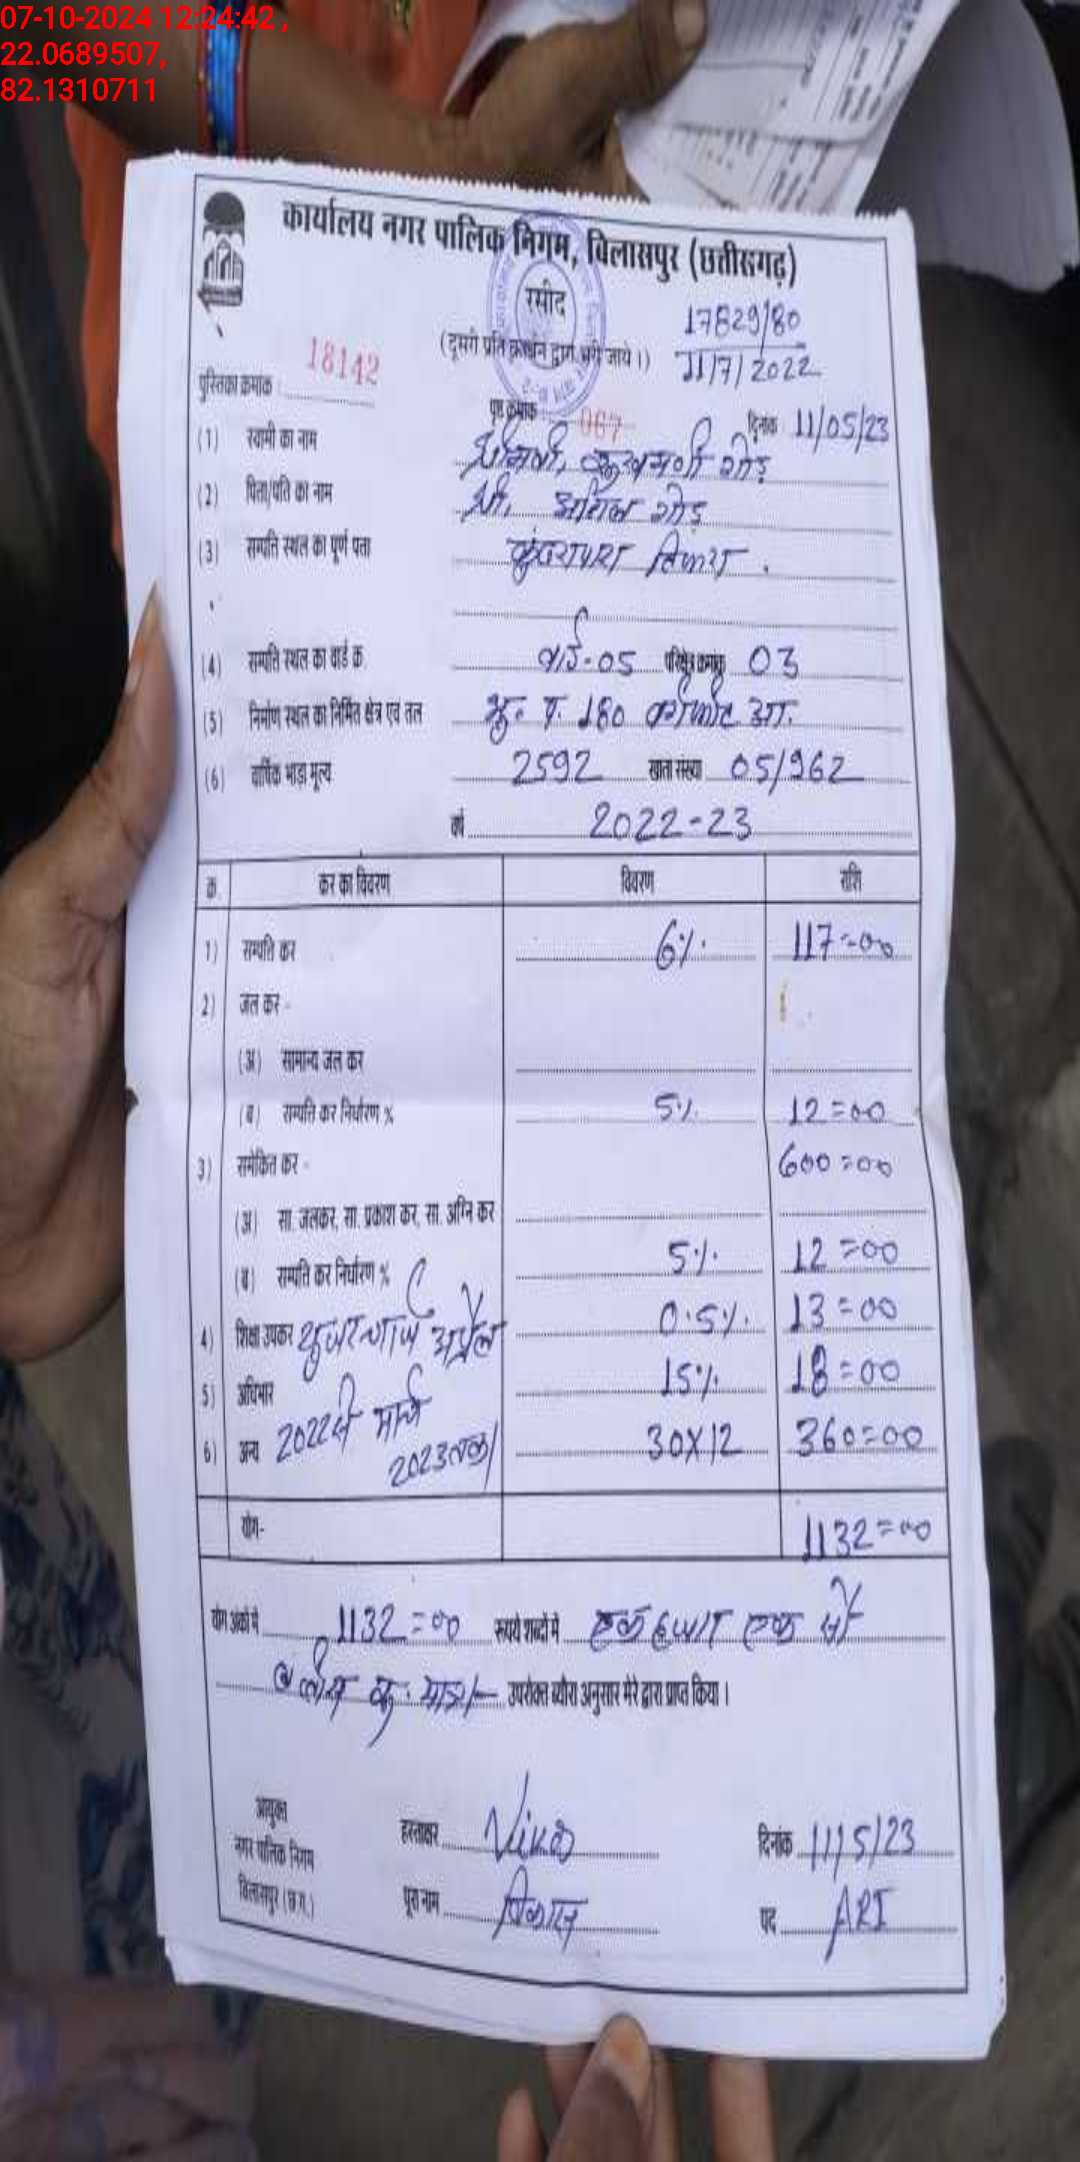 07-10-2024 12:24:42 ,
22.0689507,
82.1310711
कार्यालय नगर पालिक निगम, बिलासपुर (छत्तीसगढ़)
रसीद
17829/80
(दूसरी प्रति कार्बन द्वारा भरी जाये।)
11/7/2022
पुस्तिका क्रमांक 18142
पृष्ठ क्रमांक 067 दिनांक 11/05/23
(1) स्वामी का नाम श्रीमती, गोंड़
(2) पिता/पति का नाम श्री, अनिल गोंड़
(3) सम्पत्ति स्थल का पूर्ण पता तिफरा .
(4) सम्पत्ति स्थल का वार्ड क्र. वार्ड-05 परिक्षेत्र क्रमांक 03
(5) निर्माण स्थल का निर्मित क्षेत्र एवं तल प. 180 आ.
(6) वार्षिक भाड़ा मूल्य 2592 खाता संख्या 05/962
वर्ष 2022-23
क्र. कर का विवरण विवरण राशि
1) सम्पत्ति कर 6%. 117=00
2) जल कर -
(अ) सामान्य जल कर
(ब) सम्पत्ति कर निर्धारण % 5%. 12=00
3) समेकित कर - 600=00
(अ) सा. जलकर, सा. प्रकाश कर, सा. अग्नि कर
(ब) सम्पत्ति कर निर्धारण % 5%. 12=00
4) शिक्षा उपकर यूजर चार्ज अप्रैल 0.5%. 13=00
5) अधिभार 2022 से मार्च 15%. 18=00
6) अन्य 2023 तक। 30X12 360=00
योग- 1132=00
योग अंकों में 1132=00 रूपये शब्दों में एक हजार एक सौ
बत्तीस रू. मात्र/- उपरोक्त ब्यौरा अनुसार मेरे द्वारा प्राप्त किया।
आयुक्त
नगर पालिक निगम
बिलासपुर (छ.ग.)
हस्ताक्षर Vikas दिनांक 11/5/23
पूरा नाम विकास पद ARI